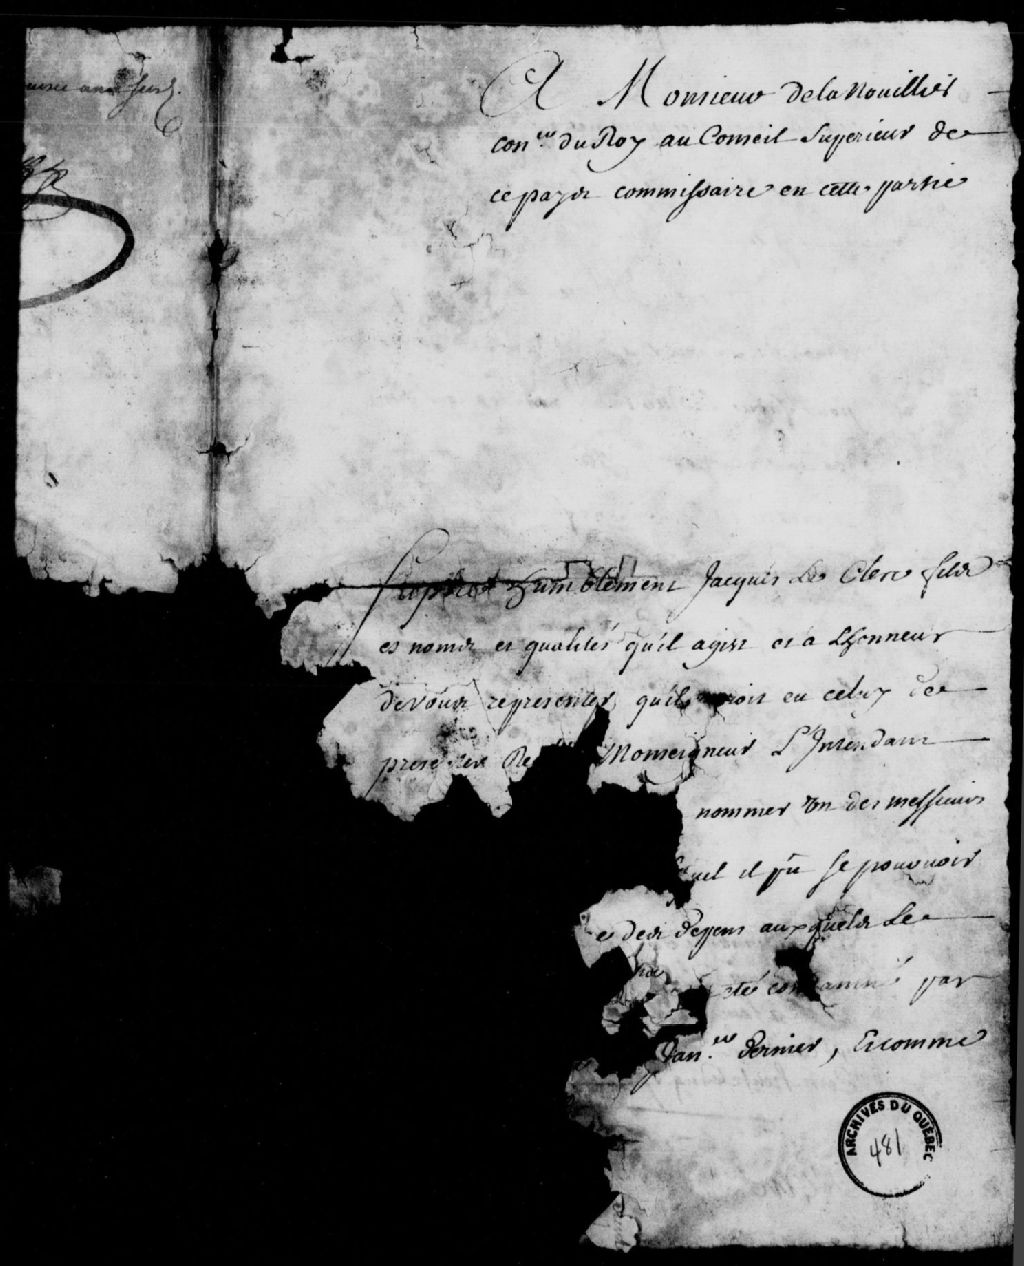 A Monsieur de la Nouillier
con.er du Roy au Conseil Superieur de
ce pays commissaire en cette partie
Supplie humblement Jacques Le Clerc
es noms et qualités qu'il agist et a Lhonneur
de vous representer, qu'il eu celuy de
Monseigneur L'Intendant
nommer un des messieurs
il se pouvoir
des depens auxquels Le
eté par
Jan.er dernier, Et comme
ARCHIVES DU QUÉBEC
481